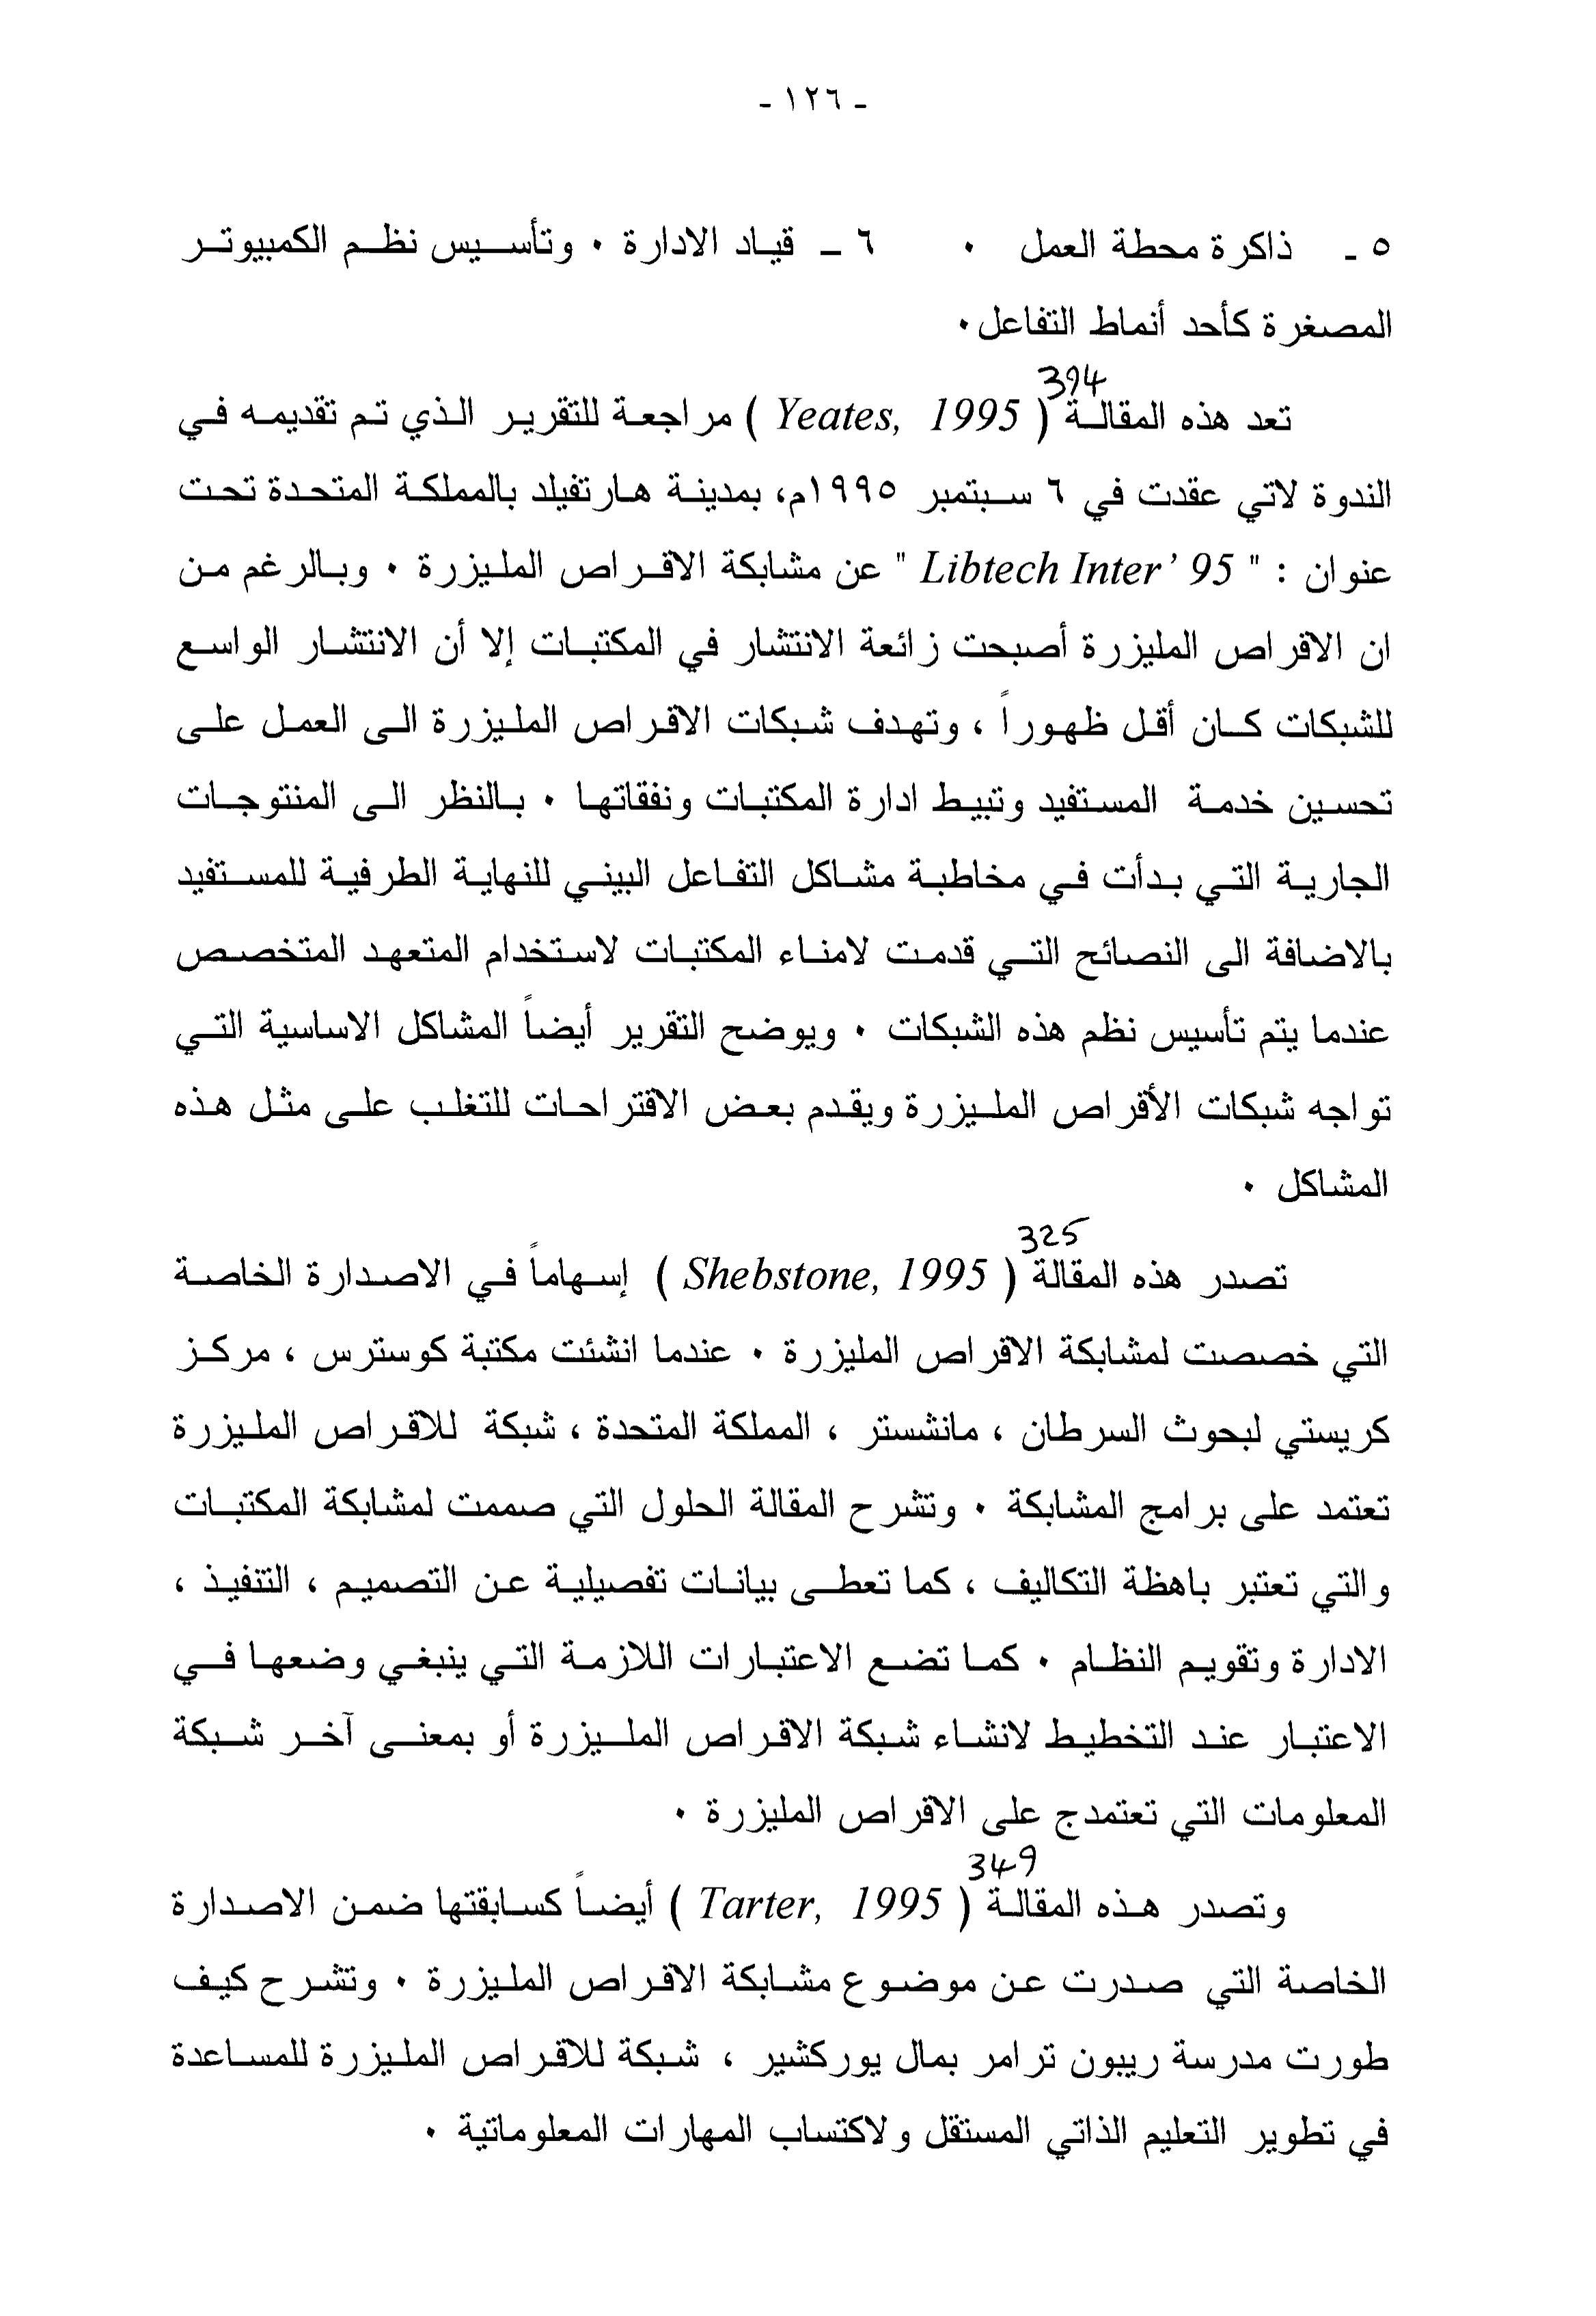 - ١٢٦ -
٥ - ذاكرة محطة العمل ٠ ٦ - قياد الادارة ٠ وتأسيس نظم الكمبيوتر
المصغرة كأحد أنماط التفاعل ٠
394
تعد هذه المقالة ( Yeates, 1995 ) مراجعة للتقرير الذي تم تقديمه في
الندوة لاتي عقدت في ٦ سبتمبر ١٩٩٥م، بمدينة هارتفيلد بالمملكة المتحدة تحت
عنوان : " Libtech Inter ’ 95 " عن مشابكة الاقراص المليزرة ٠ وبالرغم من
ان الاقراص المليزرة أصبحت زائعة الانتشار في المكتبات إلا أن الانتشار الواسع
للشبكات كان أقل ظهوراً ، وتهدف شبكات الاقراص المليزرة الى العمل على
تحسين خدمة المستفيد وتبيط ادارة المكتبات ونفقاتها ٠ بالنظر الى المنتوجات
الجارية التي بدأت في مخاطبة مشاكل التفاعل البيني للنهاية الطرفية للمستفيد
بالاضافة الى النصائح التي قدمت لامناء المكتبات لاستخدام المتعهد المتخصص
عندما يتم تأسيس نظم هذه الشبكات ٠ ويوضح التقرير أيضاً المشاكل الاساسية التي
تواجه شبكات الأقراص المليزرة ويقدم بعض الاقتراحات للتغلب على مثل هذه
المشاكل ٠
325
تصدر هذه المقالة ( Shebstone, 1995 ) إسهاماً في الاصدارة الخاصة
التي خصصت لمشابكة الاقراص المليزرة ٠ عندما انشئت مكتبة كوسترس ، مركز
كريستي لبحوث السرطان ، مانشستر ، المملكة المتحدة ، شبكة للاقراص المليزرة
تعتمد على برامج المشابكة ٠ وتشرح المقالة الحلول التي صممت لمشابكة المكتبات
والتي تعتبر باهظة التكاليف ، كما تعطى بيانات تفصيلية عن التصميم ، التنفيذ ،
الادارة وتقويم النظام ٠ كما تضع الاعتبارات اللازمة التي ينبغي وضعها في
الاعتبار عند التخطيط لانشاء شبكة الاقراص المليزرة أو بمعنى آخر شبكة
المعلومات التي تعتمدج على الاقراص المليزرة ٠
349
وتصدر هذه المقالة ( Tarter, 1995 ) أيضاً كسابقتها ضمن الاصدارة
الخاصة التي صدرت عن موضوع مشابكة الاقراص المليزرة ٠ وتشرح كيف
طورت مدرسة ريبون ترامر بمال يوركشير ، شبكة للاقراص المليزرة للمساعدة
في تطوير التعليم الذاتي المستقل ولاكتساب المهارات المعلوماتية ٠